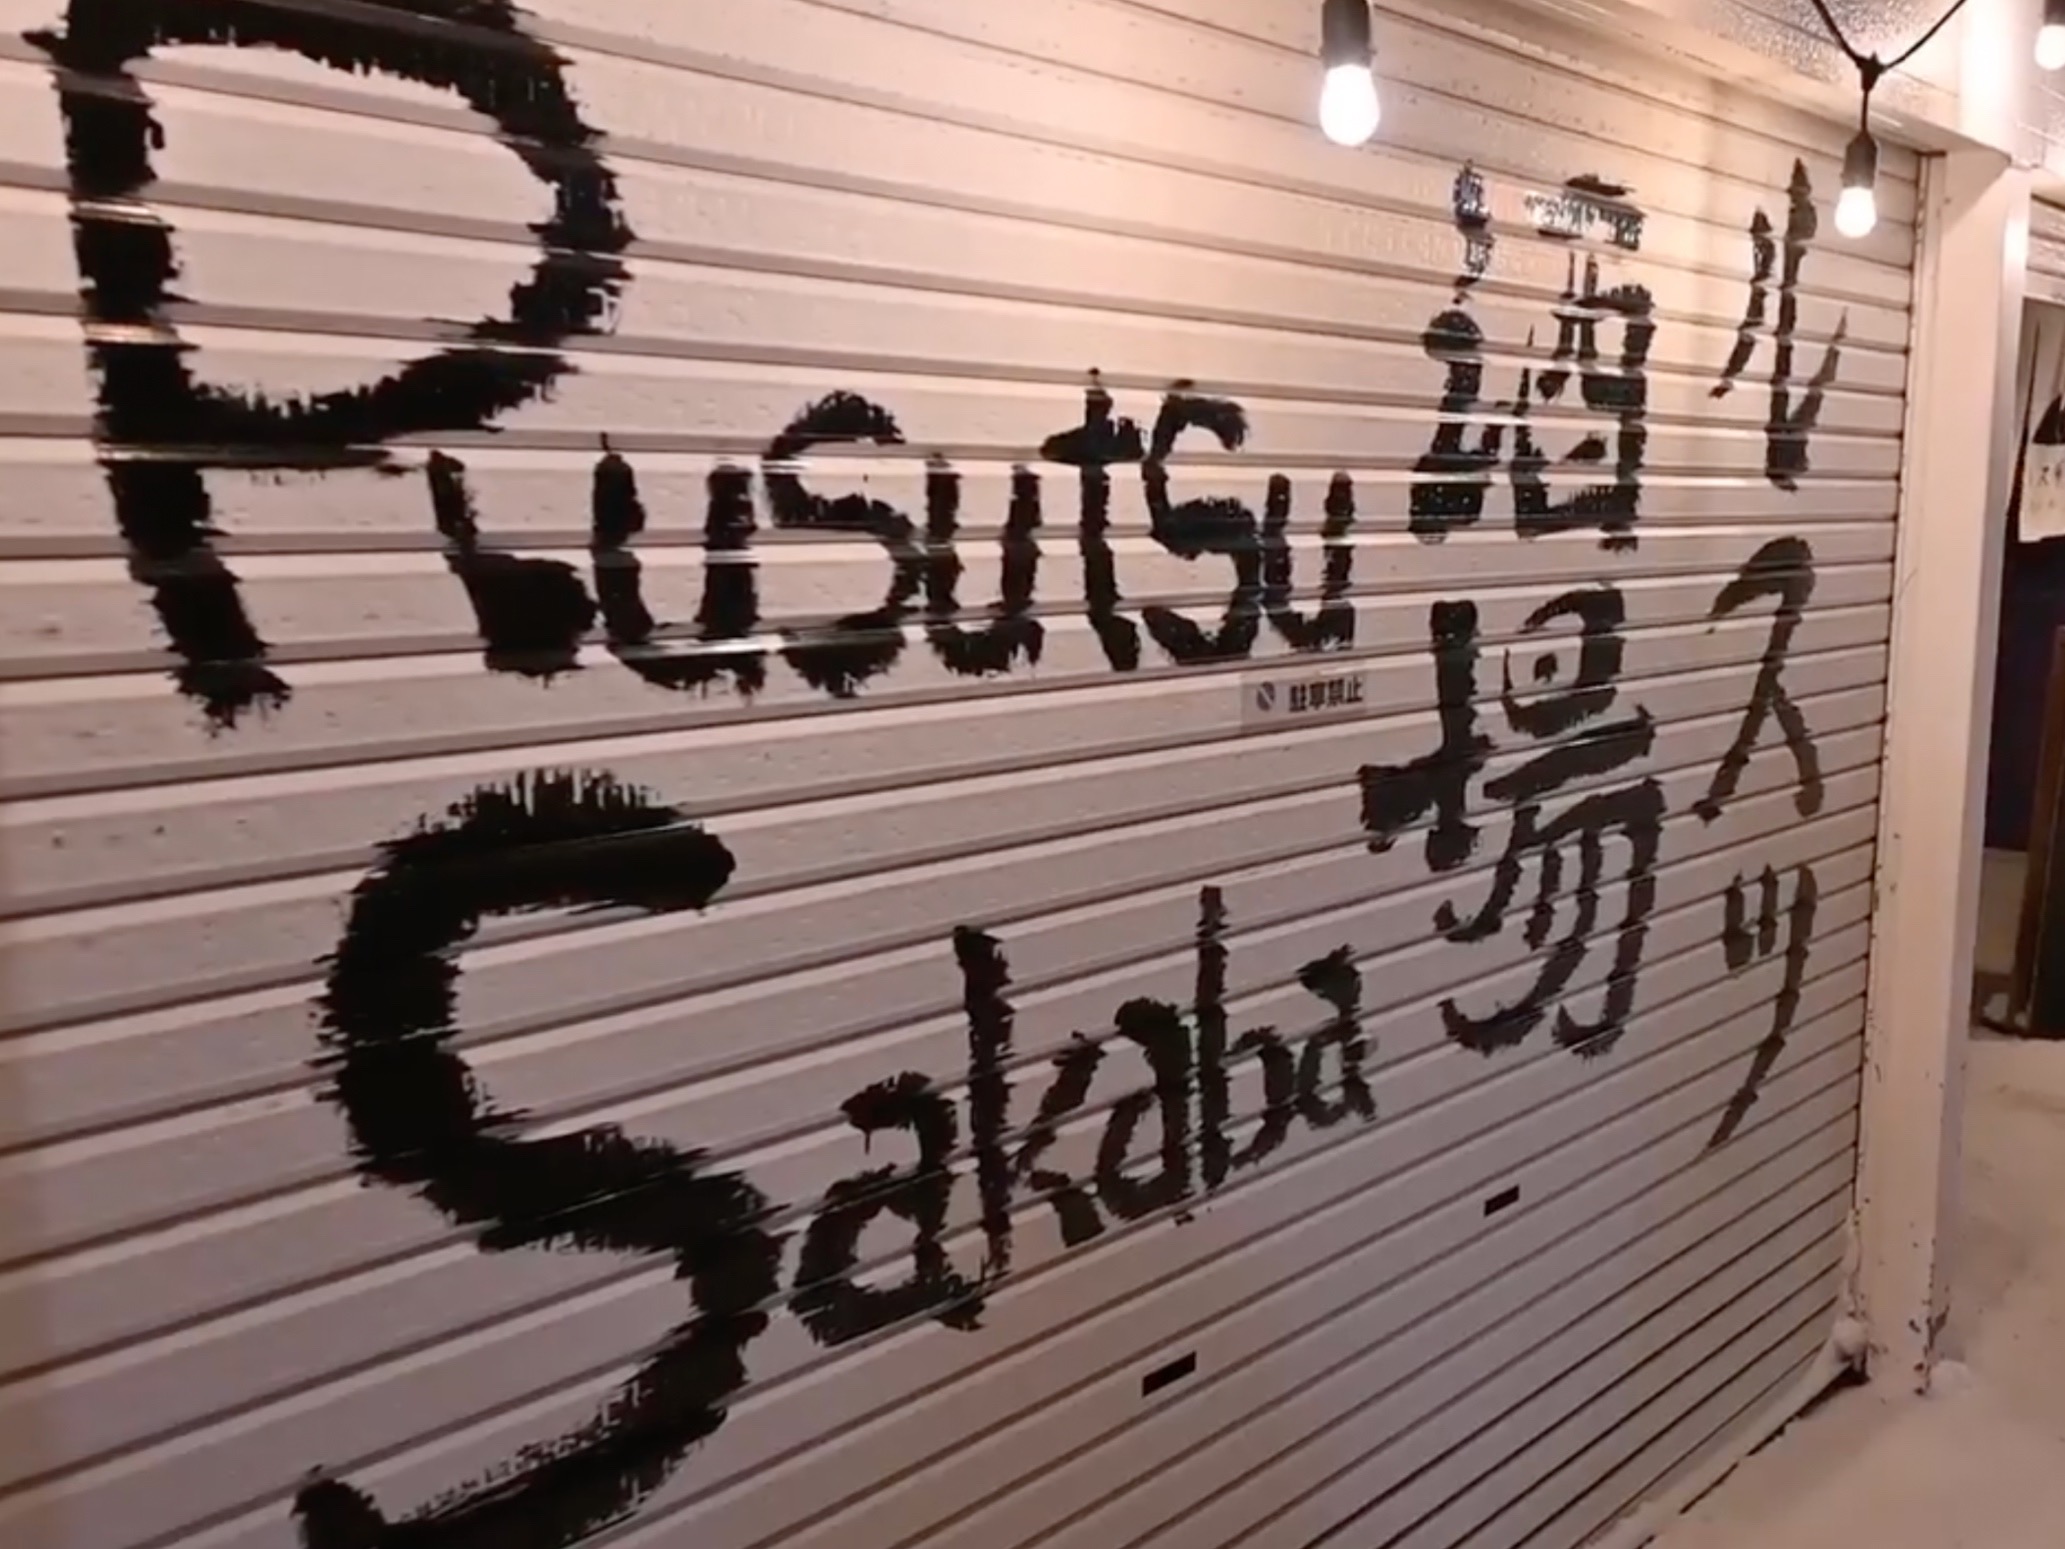 Rusutsu
Sakaba
ルスツ
酒場
駐車禁止